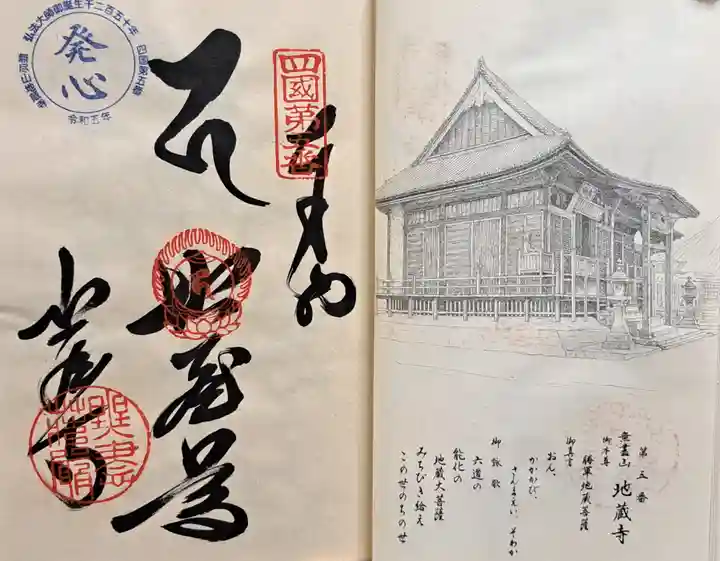 弘法大師御誕生千二百五十年
四国第五番
無尽山地蔵寺
発心
令和五年
四國第五番
奉納
地蔵尊
地蔵寺
第五番
無盡山 地蔵寺
御本尊
勝軍地蔵菩薩
御真言
おん、
かかかび、
さんまえい、そわか
御詠歌
六道の
能化の
地蔵大菩薩
みちびき給え
この世のちの世